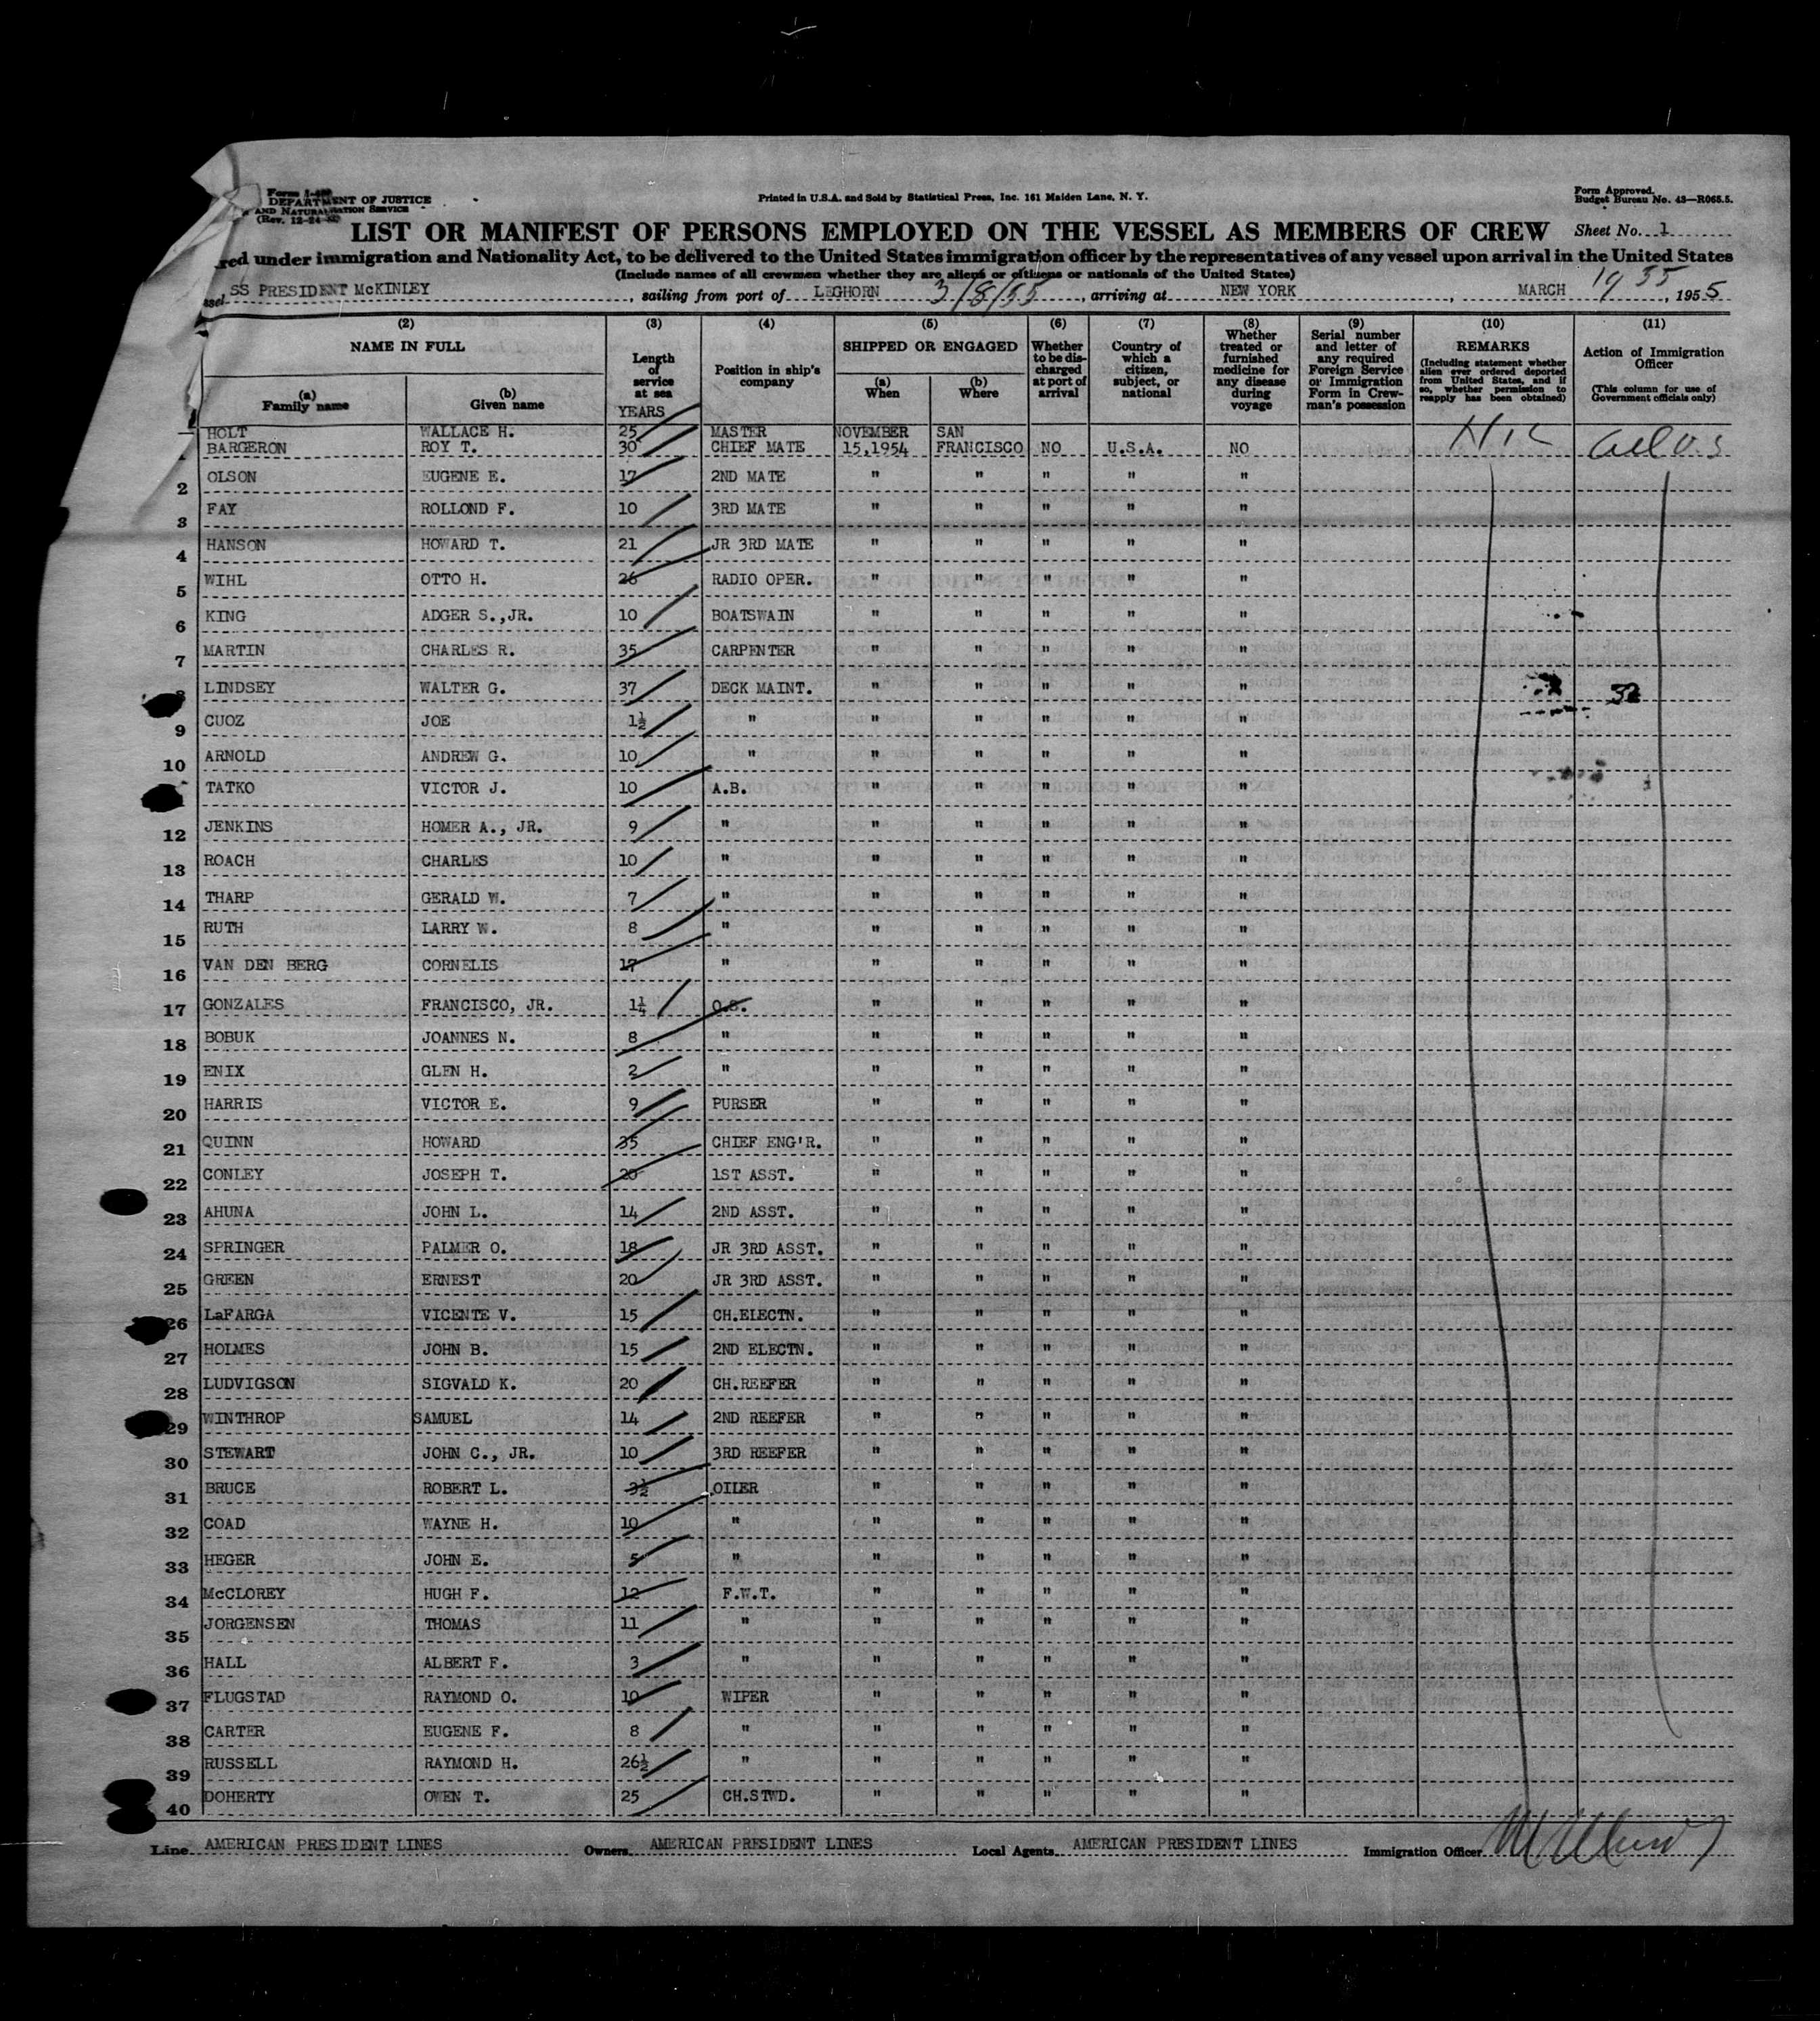 Form I-480
DEPARTMENT OF JUSTICE
AND NATURALIZATION SERVICE
(Rev. 12-24-52)
Printed in U.S.A. and Sold by Statistical Press, Inc. 161 Maiden Lane, N. Y.
Form Approved.
Budget Bureau No. 43—R065.5.
LIST OR MANIFEST OF PERSONS EMPLOYED ON THE VESSEL AS MEMBERS OF CREW
Sheet No. 1
red under immigration and Nationality Act, to be delivered to the United States immigration officer by the representatives of any vessel upon arrival in the United States
(Include names of all crewmen whether they are aliens or citizens or nationals of the United States)
ssel SS PRESIDENT McKINLEY, sailing from port of LEGHORN 3/8/55, arriving at NEW YORK, MARCH 19 55, 1955
(2) NAME IN FULL (a) Family name (b) Given name
(3) Length of service at sea YEARS
(4) Position in ship's company
(5) SHIPPED OR ENGAGED (a) When (b) Where
(6) Whether to be discharged at port of arrival
(7) Country of which a citizen, subject, or national
(8) Whether treated or furnished medicine for any disease during voyage
(9) Serial number and letter of any required Foreign Service or Immigration Form in Crewman's possession
(10) REMARKS (Including statement whether alien ever ordered deported from United States, and if so, whether permission to reapply has been obtained)
(11) Action of Immigration Officer (This column for use of Government officials only)
HOLT WALLACE H. 25 MASTER NOVEMBER SAN
BARGERON ROY T. 30 CHIEF MATE 15,1954 FRANCISCO NO U.S.A. NO All U.S
2 OLSON EUGENE E. 17 2ND MATE " " " " "
3 FAY ROLLOND F. 10 3RD MATE " " " " "
4 HANSON HOWARD T. 21 JR 3RD MATE " " " " "
5 WIHL OTTO H. 26 RADIO OPER. " " " " "
6 KING ADGER S.,JR. 10 BOATSWAIN " " " " "
7 MARTIN CHARLES R. 35 CARPENTER " " " " "
8 LINDSEY WALTER G. 37 DECK MAINT. " " " " "
9 CUOZ JOE 1½ " " " " " "
10 ARNOLD ANDREW G. 10 " " " " " "
TATKO VICTOR J. 10 A.B. " " " " "
12 JENKINS HOMER A., JR. 9 " " " " " "
13 ROACH CHARLES 10 " " " " " "
14 THARP GERALD W. 7 " " " " " "
15 RUTH LARRY W. 8 " " " " " "
16 VAN DEN BERG CORNELIS 17 " " " " " "
17 GONZALES FRANCISCO, JR. 1¼ O.S. " " " " "
18 BOBUK JOANNES N. 8 " " " " " "
19 ENIX GLEN H. 2 " " " " " "
20 HARRIS VICTOR E. 9 PURSER " " " " "
21 QUINN HOWARD 35 CHIEF ENG'R. " " " " "
22 CONLEY JOSEPH T. 20 1ST ASST. " " " " "
23 AHUNA JOHN L. 14 2ND ASST. " " " " "
24 SPRINGER PALMER O. 18 JR 3RD ASST. " " " " "
25 GREEN ERNEST 20 JR 3RD ASST. " " " " "
26 LaFARGA VICENTE V. 15 CH.ELECTN. " " " " "
27 HOLMES JOHN B. 15 2ND ELECTN. " " " " "
28 LUDVIGSON SIGVALD K. 20 CH.REEFER " " " " "
29 WINTHROP SAMUEL 14 2ND REEFER " " " " "
30 STEWART JOHN C., JR. 10 3RD REEFER " " " " "
31 BRUCE ROBERT L. 3½ OILER " " " " "
32 COAD WAYNE H. 10 " " " " " "
33 HEGER JOHN E. 5 " " " " " "
34 McCLOREY HUGH F. 12 F.W.T. " " " " "
35 JORGENSEN THOMAS 11 " " " " " "
36 HALL ALBERT F. 3 " " " " " "
37 FLUGSTAD RAYMOND O. 10 WIPER " " " " "
38 CARTER EUGENE F. 8 " " " " " "
39 RUSSELL RAYMOND H. 26½ " " " " " "
40 DOHERTY OWEN T. 25 CH.STWD. " " " " "
Line AMERICAN PRESIDENT LINES Owners AMERICAN PRESIDENT LINES Local Agents AMERICAN PRESIDENT LINES Immigration Officer